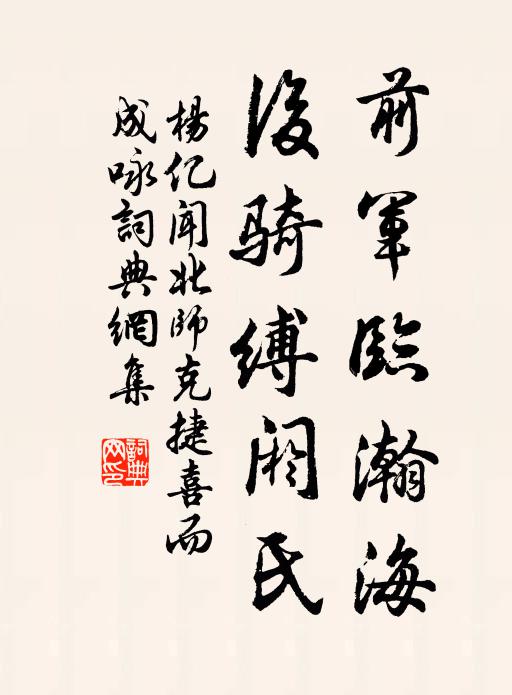 前軍臨瀚海
後騎縛閼氏
楊亿闻北師克捷喜而
成咏詞典網集
詞典
网印